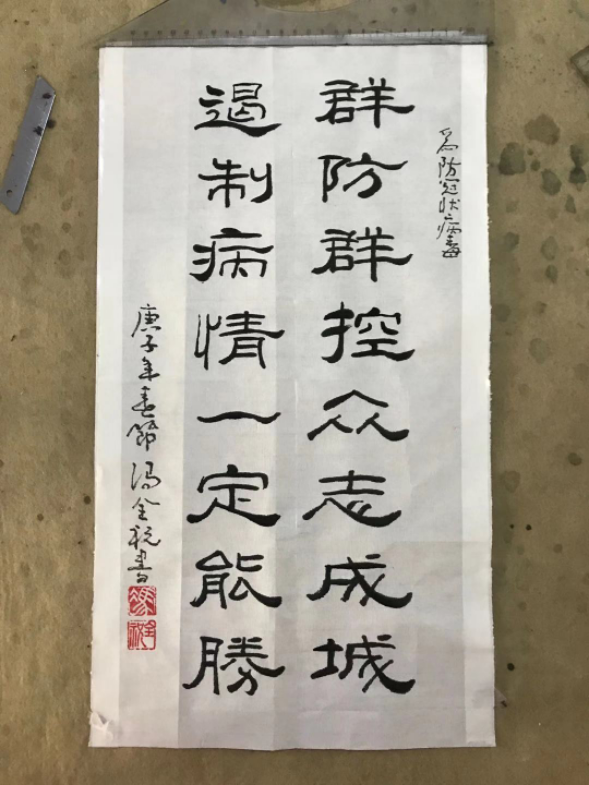 为防冠状病毒
群防群控众志成城
遏制病情一定能勝
庚子年春節冯金祝書